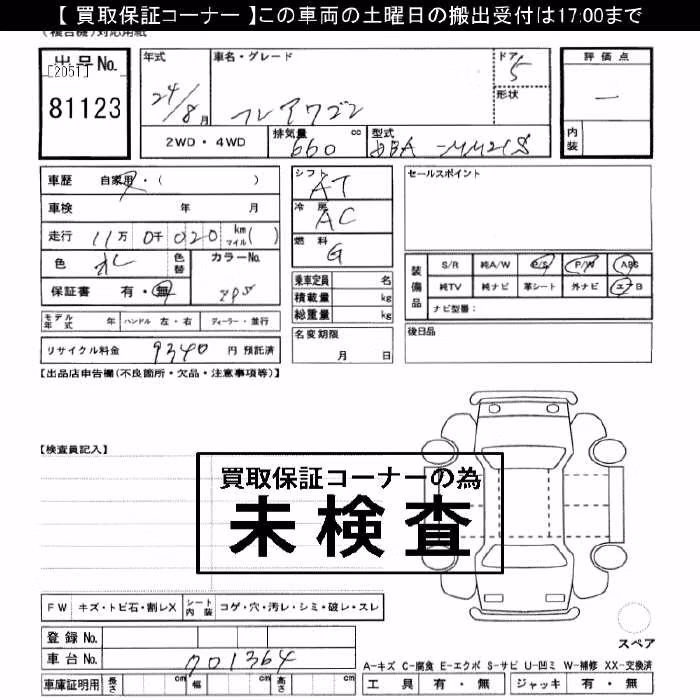 【 買取保証コーナー 】この車両の土曜日の搬出受付は17:00まで
(複合機)対応用紙
出品No.
[2051]
81123
年式
24/8月
車名・グレード
フレアワゴン
ドア
5
形状
評価点
—
内装
2WD・4WD
排気量
660 cc
型式
DBA-MM21S
車歴 自家用・( )
車検 年 月
走行 11万0千020 km マイル( )
色
色替
カラーNo.
ZPS
保証書 有・無
モデル年式 年 ハンドル 左・右 ディーラー・並行
リサイクル料金 9340 円 預託済
シフト
AT
冷房
AC
燃料
G
乗車定員 名
積載量 kg
総重量 kg
名変期限
月 日
セールスポイント
装備品
S/R 純A/W P/S P/W ABS
純TV 純ナビ 革シート 外ナビ エアB
ナビ型量:
後日品
【出品店申告欄(不良箇所・欠品・注意事項等)】
【検査員記入】
買取保証コーナーの為
未検査
FW キズ・トビ石・割レX シート内装 コゲ・穴・汚レ・シミ・破レ・スレ
登録No.
車台No. 701364
スペア
A-キズ C-腐食 E-エクボ S-サビ U-凹ミ W-補修 XX-交換済
車庫証明用 長さ cm 幅 cm 高さ cm
工具 有・無 ジャッキ 有・無